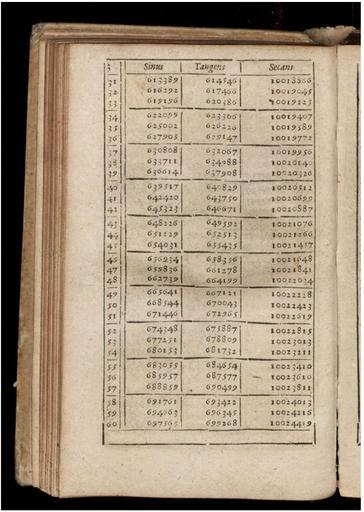 3 Sinus Tangens Secans
31 613389 614546 10018866
32 616292 617466 10019045
33 619196 620386 10019225
34 622099 623306 10019407
35 625002 626226 10019589
36 627905 629147 10019772
37 630808 632067 10019956
38 633711 634988 10020140
39 636614 637908 10020326
40 639517 640829 10020512
41 642420 643750 10020699
42 645323 646671 10020887
43 648226 649592 10021076
44 651129 652513 10021266
45 654031 655435 10021457
46 656934 658356 10021648
47 659836 661278 10021841
48 662739 664199 10022034
49 665641 667121 10022228
50 668544 670043 10022423
51 671446 672965 10022619
52 674348 675887 10022815
53 677251 678809 10023013
54 680153 681732 10023211
55 683055 684654 10023410
56 685957 687577 10023610
57 688859 690499 10023811
58 691761 693422 10024013
59 694663 696345 10024216
60 697565 699268 10024419